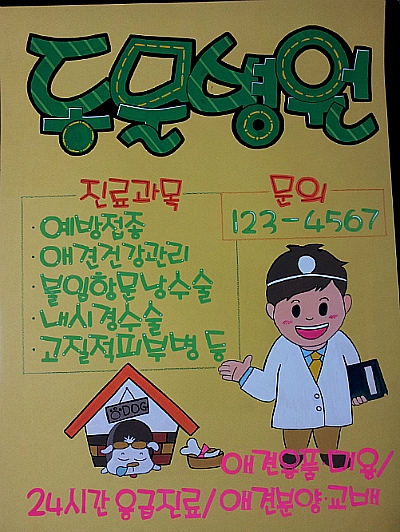 동물병원
진료과목
·예방접종
·애견건강관리
·불임항문낭수술
·내시경수술
·고질적피부병 등
문의
123-4567
DOG
애견용품 미용/
24시간 응급진료/ 애견분양·교배